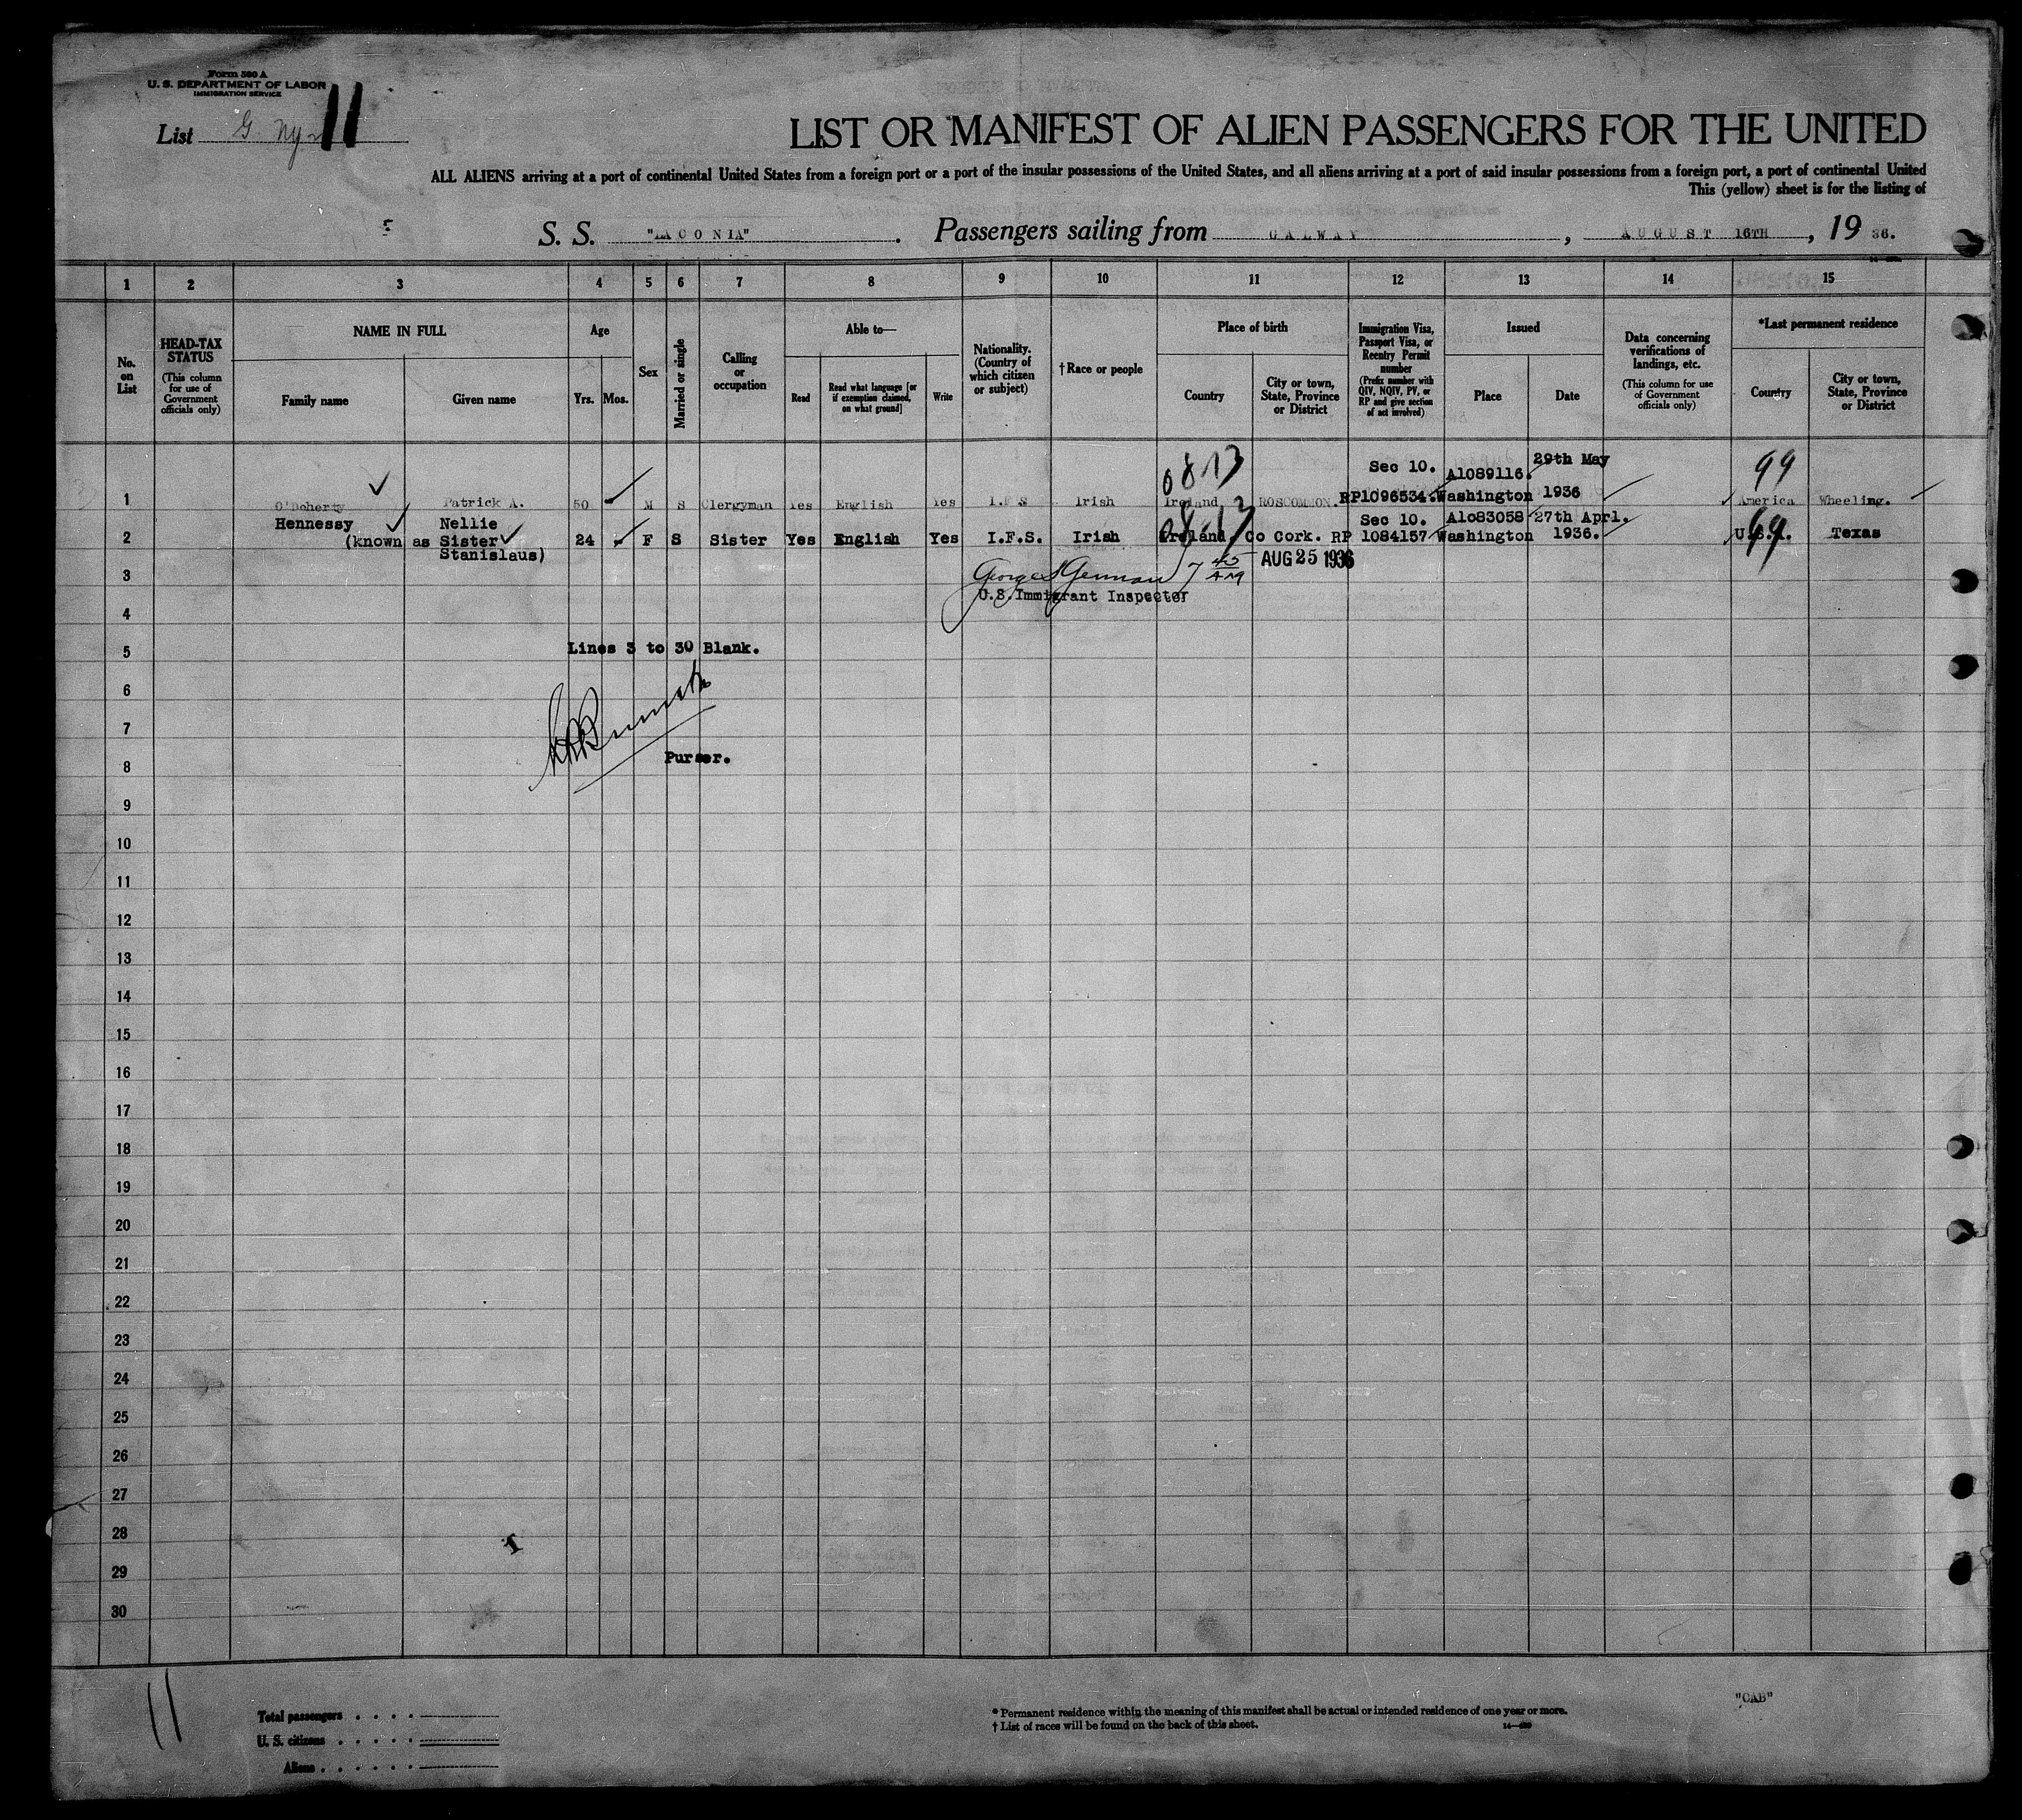 Form 500 A
U. S. DEPARTMENT OF LABOR
IMMIGRATION SERVICE
List 11
LIST OR MANIFEST OF ALIEN PASSENGERS FOR THE UNITED
ALL ALIENS arriving at a port of continental United States from a foreign port or a port of the insular possessions of the United States, and all aliens arriving at a port of said insular possessions from a foreign port, a port of continental United
This (yellow) sheet is for the listing of
S. S. "LACONIA". Passengers sailing from GALWAY, AUGUST 16TH, 1936.
1 2 3 4 5 6 7 8 9 10 11 12 13 14 15
No. on List
HEAD-TAX STATUS (This column for use of Government officials only)
NAME IN FULL
Family name
Given name
Age
Yrs. Mos.
Sex
Married or single
Calling or occupation
Able to—
Read
Read what language [or if exemption claimed, on what ground]
Write
Nationality. (Country of which citizen or subject)
†Race or people
Place of birth
Country
City or town, State, Province or District
Immigration Visa, Passport Visa, or Reentry Permit number (Prefix number with QIV, NQIV, PV, or RP and give section of act involved)
Issued
Place
Date
Data concerning verifications of landings, etc. (This column for use of Government officials only)
*Last permanent residence
Country
City or town, State, Province or District
0813 Sec 10. A1089116. 29th May 99
1 O'Doherty Patrick A. 50 M S Clergyman Yes English Yes I.F.S Irish Ireland ROSCOMMON. RP1096534. Washington 1936 America Wheeling.
Hennessy Nellie 0813 Sec 10. A1083058 27th Aprl. 99
2 (known as Sister 24 - F S Sister Yes English Yes I.F.S. Irish Ireland, Co Cork. RP 1084157 Washington 1936. U.S.A. Texas
Stanislaus)
3 7 45 AM AUG 25 1936
U.S. Immigrant Inspector
4
5 Lines 3 to 30 Blank.
6
7
8 Purser.
9
10
11
12
13
14
15
16
17
18
19
20
21
22
23
24
25
26
27
28
29
30
11
"CAB"
Total passengers
U. S. citizens
Aliens
* Permanent residence within the meaning of this manifest shall be actual or intended residence of one year or more.
† List of races will be found on the back of this sheet.